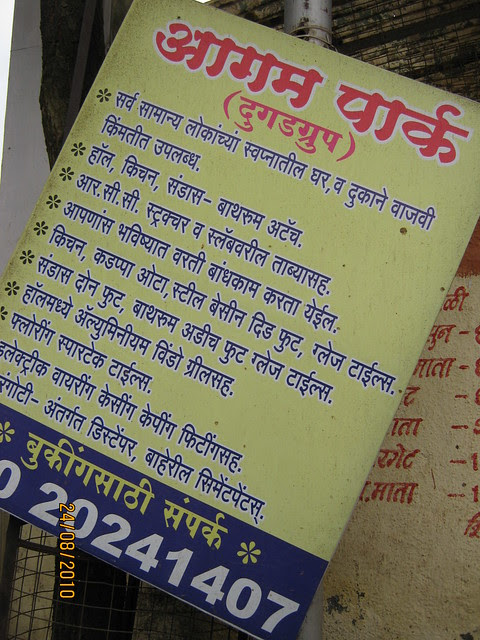 आगम पार्क
(दुगडग्रुप)
* सर्व सामान्य लोकांच्यां स्वप्नातील घर,व दुकाने वाजवी
किंमतीत उपलब्ध.
* हॉल, किचन, संडास- बाथरूम अटॅच.
* आर.सी.सी. स्ट्रक्चर व स्लॅबवरील ताब्यासह.
* आपणांस भविष्यात वरती बांधकाम करता येईल.
* किचन, कडप्पा ओटा,स्टील बेसीन दिड फुट, ग्लेज टाईल्स.
* संडास दोन फुट, बाथरूम अडीच फुट ग्लेज टाईल्स.
* हॉलमध्ये ॲल्युमिनीयम विंडो ग्रीलसह.
फ्लोरींग स्पारटेक टाईल्स.
लेक्ट्रीक वायरींग केसींग केपींग फिटींगसह.
रंगोटी- अंतर्गत डिस्टेंपर, बाहेरील सिमेंटपेंटस्.
* बुकींगसाठी संपर्क *
0 20241407
24/08/2010
ळी
माता
ता
रमेट
.माता